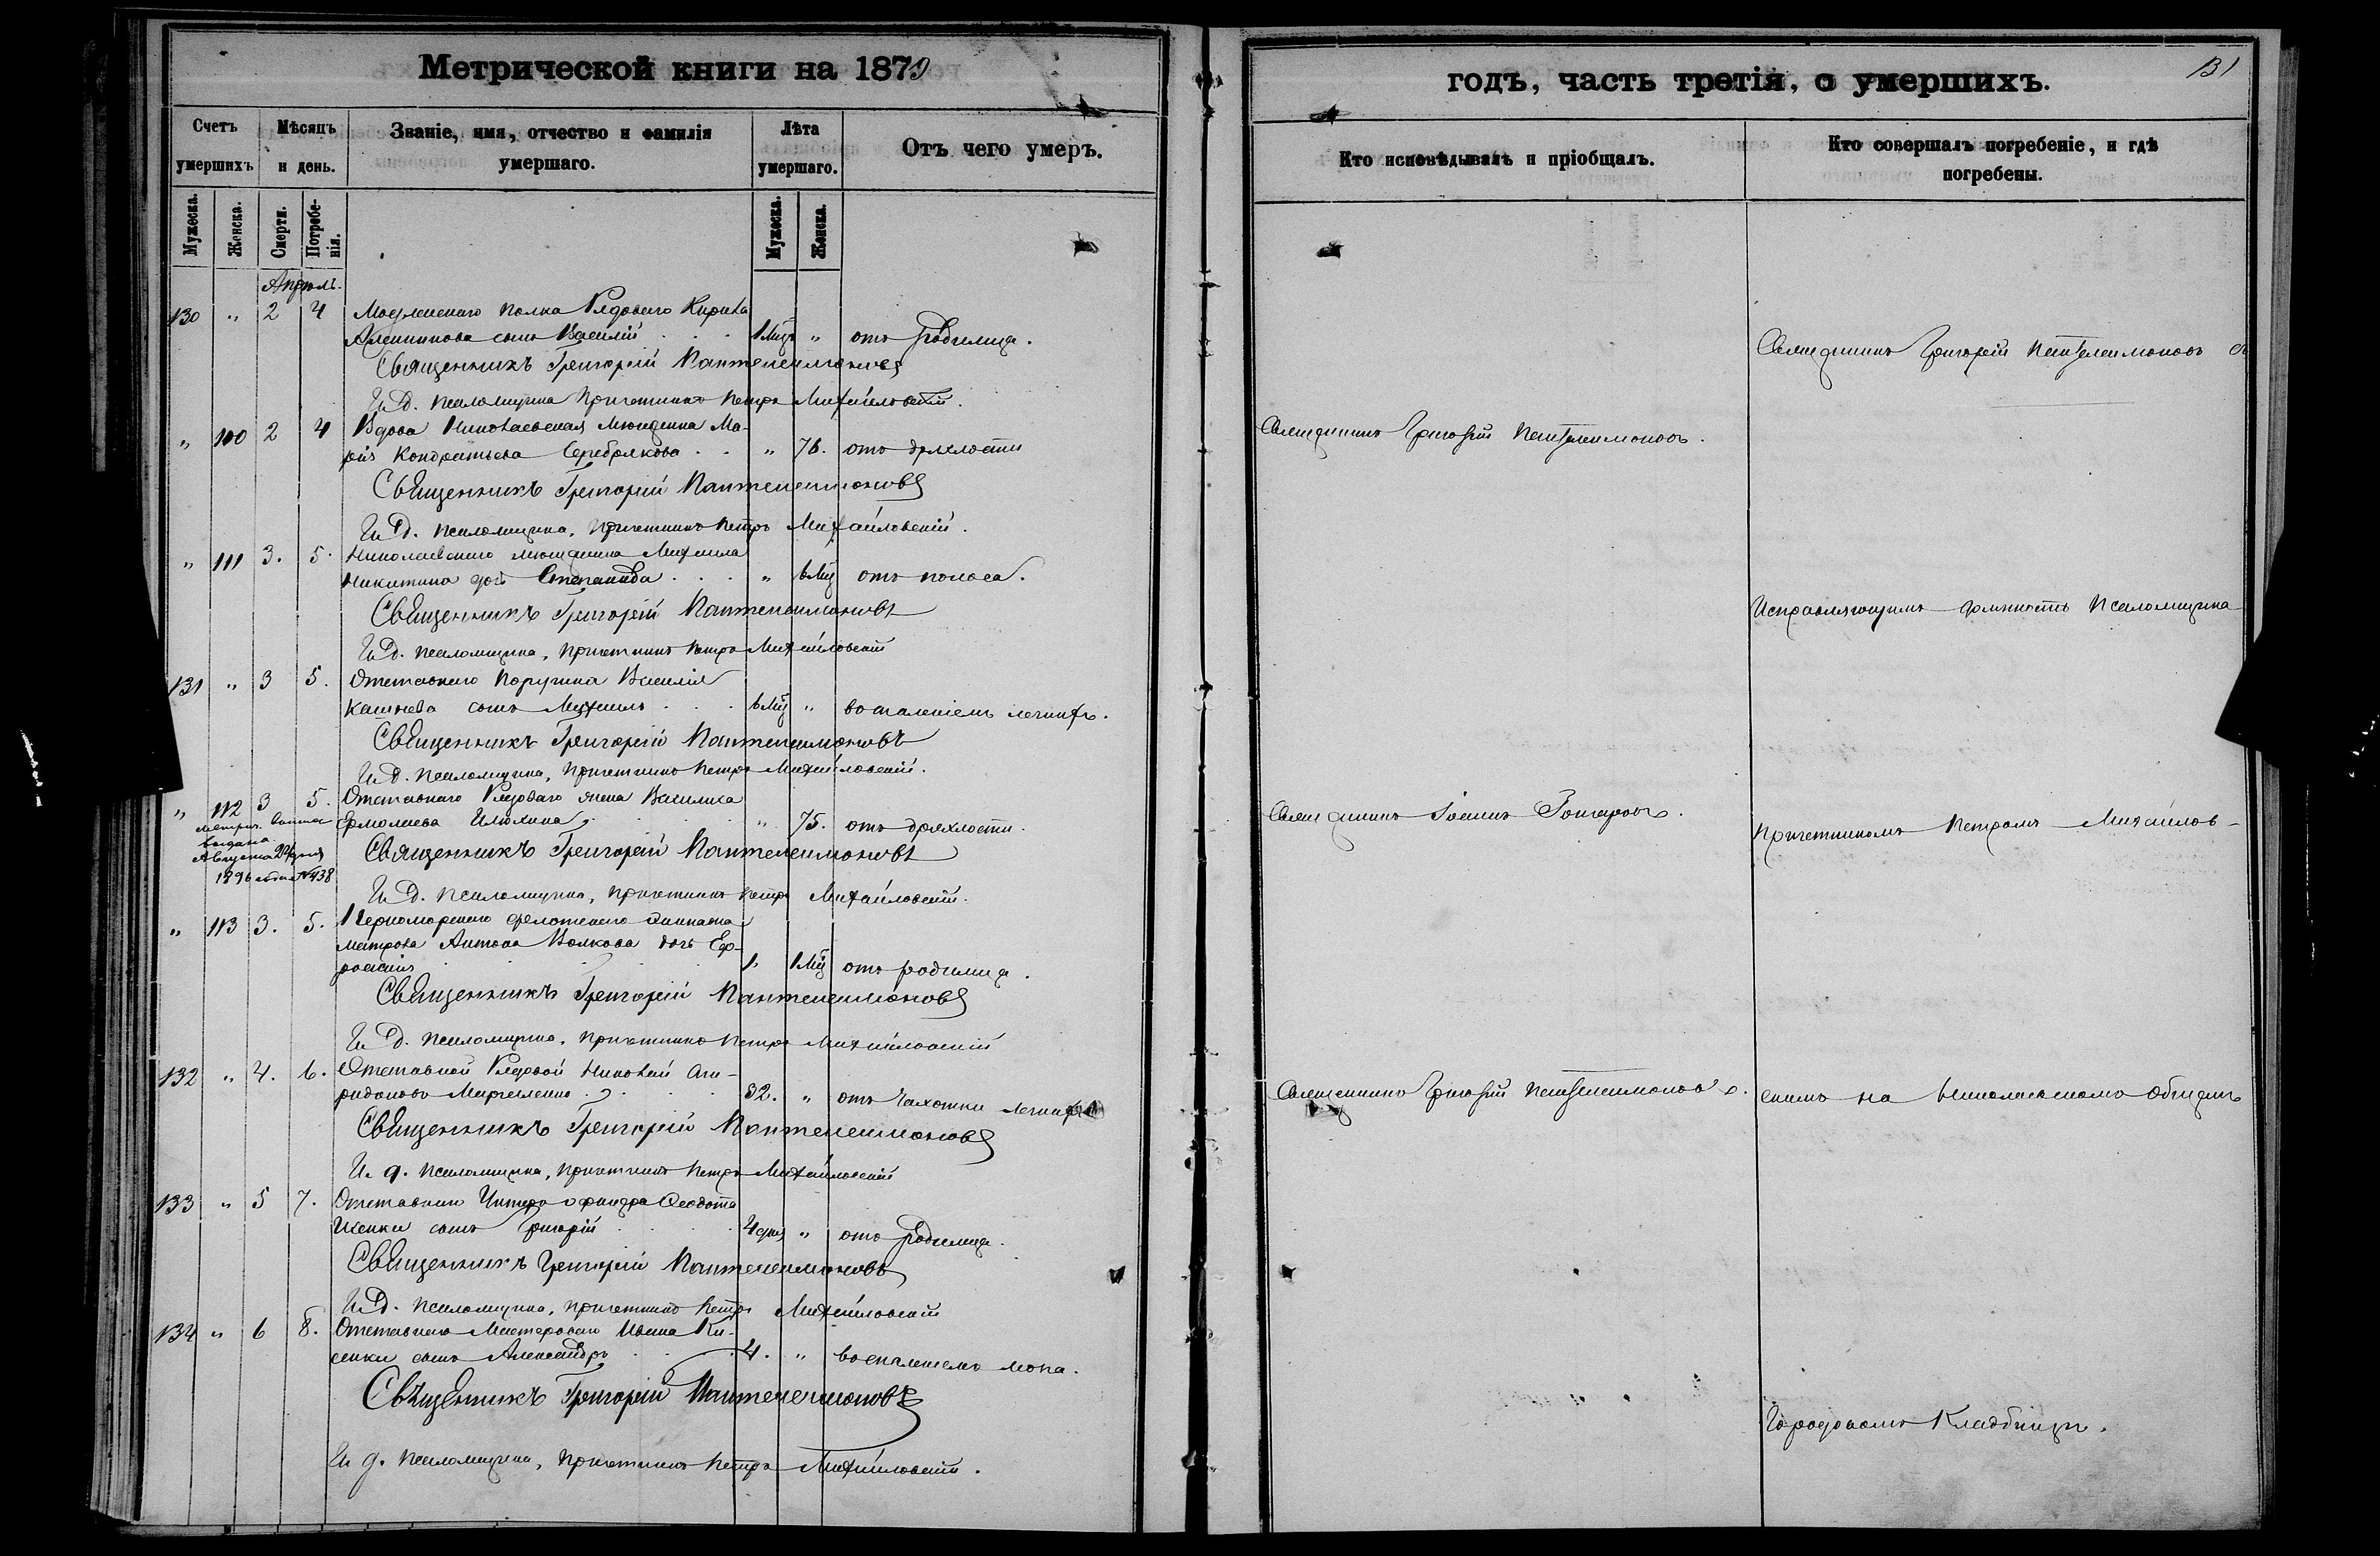 Метрической книги на 1879
годъ, часть третія, о умершихъ.
131
Счетъ умершихъ
Мѣсяцъ и день.
Званіе, имя, отчество и фамилія умершаго.
Лѣта умершаго.
Отъ чего умеръ.
Кто исповѣдывалъ и пріобщалъ.
Кто совершалъ погребеніе, и гдѣ погребены.
Мужеска.
Женска.
Смерти.
Погребенія.
Мужеска.
Женска.
Апрѣль.
130 " 2 4 полка Рядоваго
сынъ Василій 1 Мц. " отъ родимца.
Священникъ Григорій Пантелеимоновъ съ
Священникъ Григорій Пантелеимоновъ
И. Д. псаломщика Причетникъ Петръ Михайловскій.
" 100 2 4 Вдова Николаевская мѣщанка Ма-
рія Кондратьева Серебрякова " 76. отъ дряхлости
Священникъ Григорій Пантелеимоновъ.
Священникъ Григорій Пантелеимоновъ
И. Д. псаломщика, причетникъ Петръ Михайловскій.
" 111 3. 5. Николаевскаго мѣщанина Михаила
Никитина дочь Степанида " 6 Мц отъ поноса.
Священникъ Григорій Пантелеимоновъ
Исправляющимъ должность Псаломщика
И. Д. псаломщика, причетникъ Петръ Михайловскій
131 " 3 5. Отставнаго Поручика Василія
сынъ Михаилъ 6 Мц " воспаленіемъ легкихъ.
Священникъ Григорій Пантелеимоновъ
И. Д. псаломщика, причетникъ Петръ Михайловскій.
" 112 3 5. Отставнаго Рядоваго жена Василиса
Ермолаева Илюхина " 75. отъ дряхлости.
Священникъ Іоаннъ Гончаровъ.
Причетникомъ Петромъ Михайлов-
выдана
Августа 24 дня
1896 года № 438
Священникъ Григорій Пантелеимоновъ
И. Д. псаломщика, причетникъ Петръ Михайловскій.
" 113 3. 5. 1 Черноморскаго флотскаго экипажа
матроса Антона Волкова дочь Еф-
росинія 1. 1 Мц отъ родимца.
Священникъ Григорій Пантелеимоновъ
И. Д. псаломщика, причетникъ Петръ Михайловскій
132 " 4. 6. Отставной Рядовой Николай Спи-
ридоновъ 32. " отъ чахотки легкихъ
Священникъ Григорій Пантелеимоновъ.
скимъ на Николаевскомъ общемъ
Священникъ Григорій Пантелеимоновъ
И. д. псаломщика, причетникъ Петръ Михайловскій
133 " 5 7. Отставнаго Унтеръ офицера Ѳеодота
сынъ Григорій 4 дня " отъ родимца.
Священникъ Григорій Пантелеимоновъ
И. Д. псаломщика, причетникъ Петръ Михайловскій
134 " 6 8. Отставнаго Мастероваго Ивана Ки-
сынъ Александръ 4. " воспаленіемъ мозга.
Священникъ Григорій Пантелеимоновъ
Городскомъ Кладбищѣ.
И д. псаломщика, Причетникъ Петръ Михайловскій.